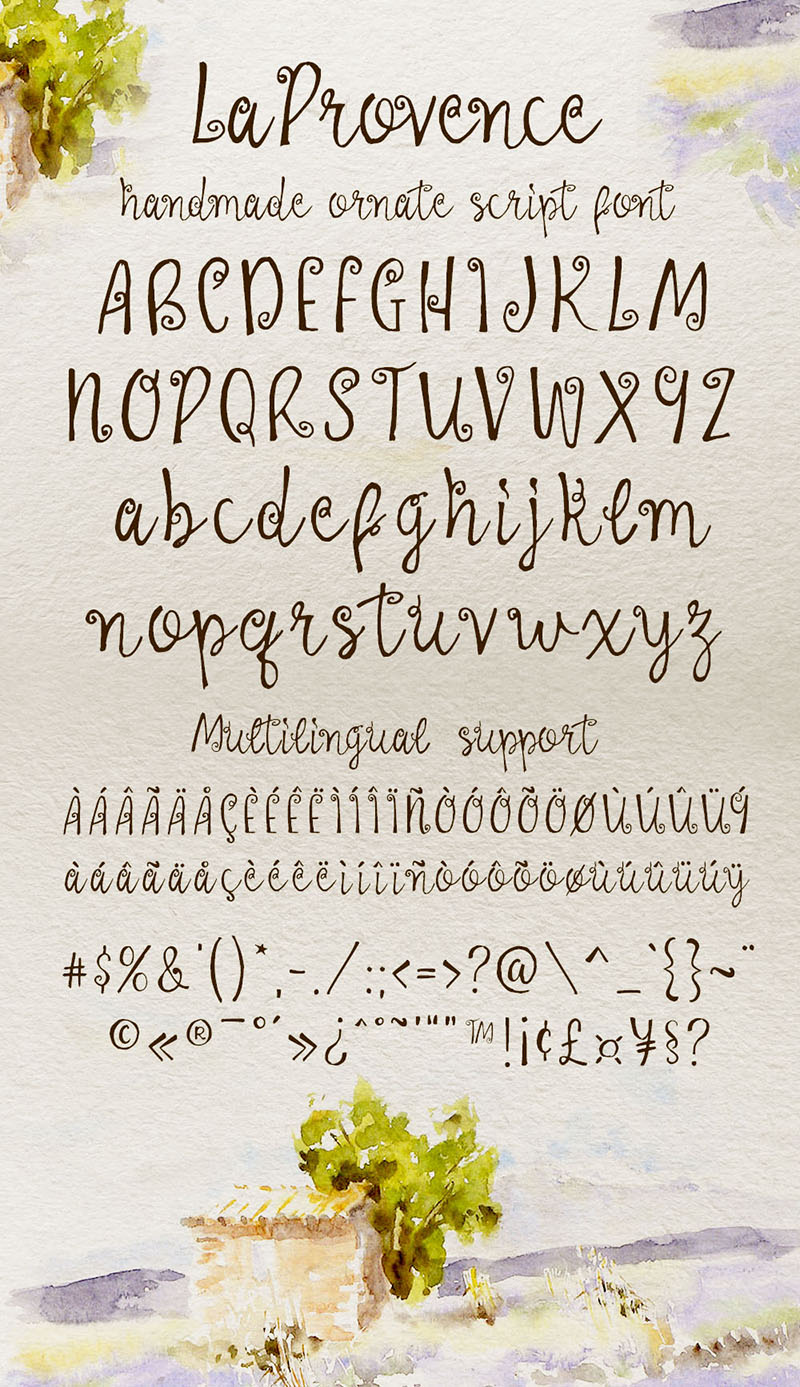 LaProvence
handmade ornate script font
ABCDEFGHIJKLM
NOPQRSTUVWXYZ
abcdefghijklm
nopqrstuvwxyz
Multilingual support
ÀÁÂÃÄÅÇÈÉÊËÌÍÎÏÑÒÓÔÕÖØÙÚÛÜÝ
àáâãäåçèéêëìíîïñòóôõöøùúûüúÿ
#$%&'()*,-./:;<=>?@\^_`{}~¨
©«®¯°´»¿^°~'"“"™!¡¢£¤¥§?